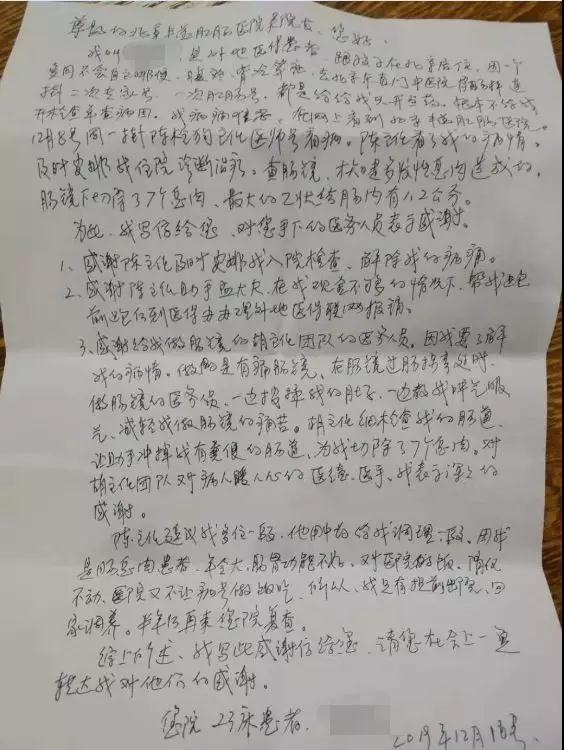 尊敬的北京 肛肠医院 院长、您好。
我叫 是外地医保患者 跟孩子在北京居住,因一个
查因不会自主排便、腹 去北京东直门中医院
挂二次专家号、一次肛肠号、都是给我只开点药、根本不给我
开检查单查病因。 在网上看到北京 肛肠医院、
12月8号周一挂陈 主任医师号看病。陈主任看了我的病情。
及时安排我住院诊断治疗。查肠镜、 多发性息肉 的,
肠镜下切除了7个息肉、最大的乙状结肠肉有1.2公分。
为此、我写信给您、对您手下的医务人员表示感谢。
1、感谢陈主任及时安排我入院检查、解除我的病痛。
2、感谢陈主任助手孟大夫、在我现金不够的情况下、帮我
前跑后到医保办办理外地医保联网报销。
3、感谢给我做肠镜的胡主任团队的医务人员。因我要了解
我的病情。做的是有痛肠镜、在肠镜过肠拐弯处时、
做肠镜的医务员、一边按揉我的肚子、一边教我呼气吸
气、减轻我做肠镜的痛苦。胡主任细检查我的肠道、
让助手冲掉我有粪便的肠道、为我切除了7个息肉。对
胡主任团队对病人暖人心的医德、医手、我表示深深的
感谢。
陈主任建议我多住一段、他用中药给我调理一段、因我
是肠息肉患者、年令大、胃肠功能不好、对医院的饭、消化
不动、医院又不让病号做饭吃、所以、我是有提前出院、回
家调养。半年后再来您院复查。
综上所述、我写此感谢信给您、请您在会上一定
转达我对他们的感谢。
您院 23床患者、
2019年12月18号、